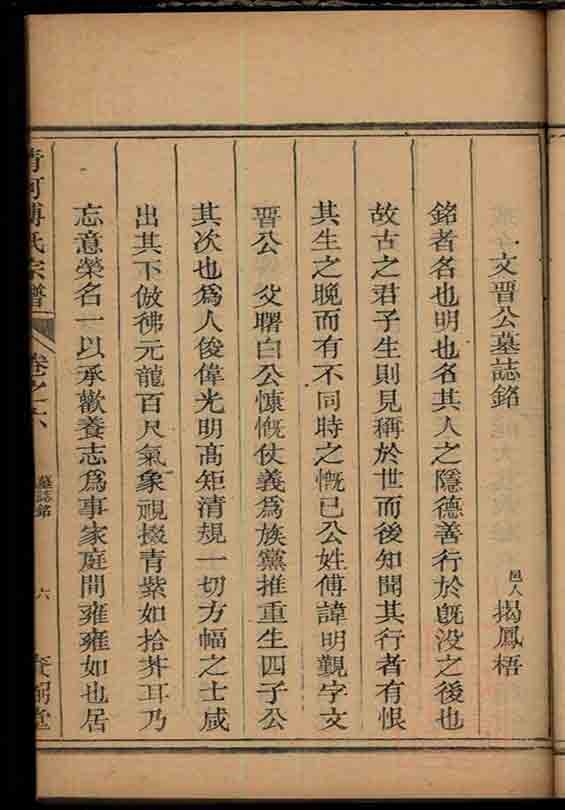 文晋公墓誌銘 邑人 揭鳳梧
銘者名也明也名其人之隱德善行於既没之後也
故古之君子生則見稱於世而後知聞其行者有恨
其生之晚而有不同時之慨已公姓傅諱明覲字文
晋公 父曙白公慷慨仗義爲族黨推重生四子公
其次也爲人俊偉光明高矩清規一切方幅之士咸
出其下倣彿元龍百尺氣象視掇青紫如拾芥耳乃
忘意榮名一以承歡養志爲事家庭間雍雍如也居
清河傅氏宗譜 卷之六 墓誌銘 六 堂